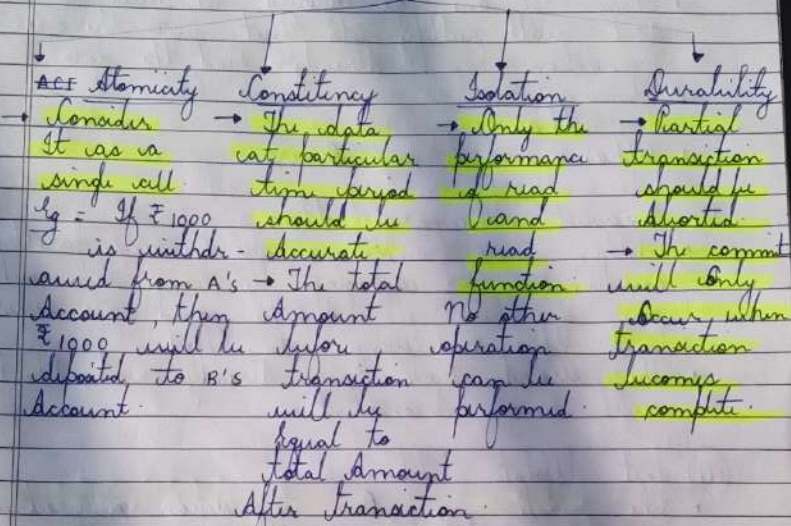 ACI Atomicity
→ Consider
It as a
single call.
Eg = If ₹1000
is withdr-
awed from A's
Account, then
₹1000 will be
deposited to B's
Account.
Constitency
→ The data
at particular
time period
should be
Accurate
→ The total
Amount
before
transiction
will be
Equal to
total Amount
After Transiction.
Isolation
→ Only the
performance
of read
and
read
function.
No other
operation
can be
performed.
Durability
→ Partial
transiction
should be
Aborted.
→ The commit
will Only
Occur when
transiction
becomes
complete.